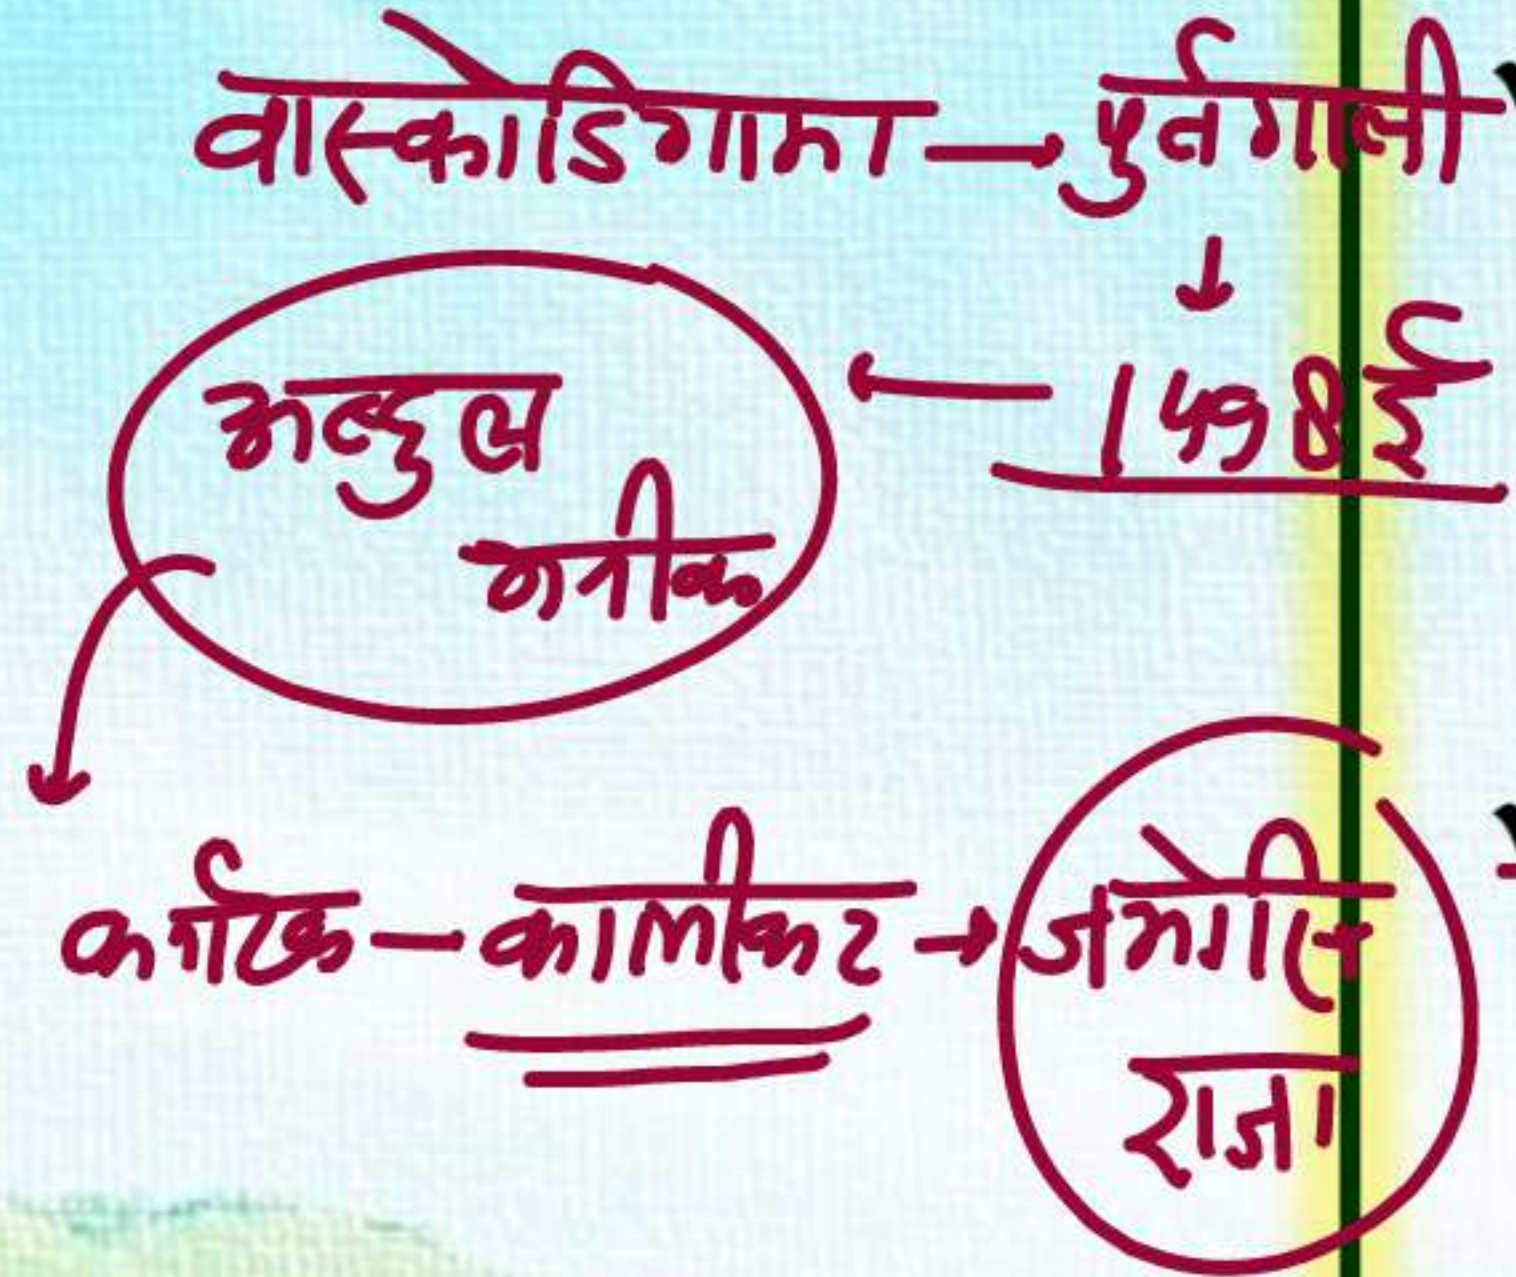 वास्कोडिगामा → पुर्तगाली
↓
अब्दुल ← 1498ई
मनीक
कर्नाटक – कालीकट → जमोरिन
राजा